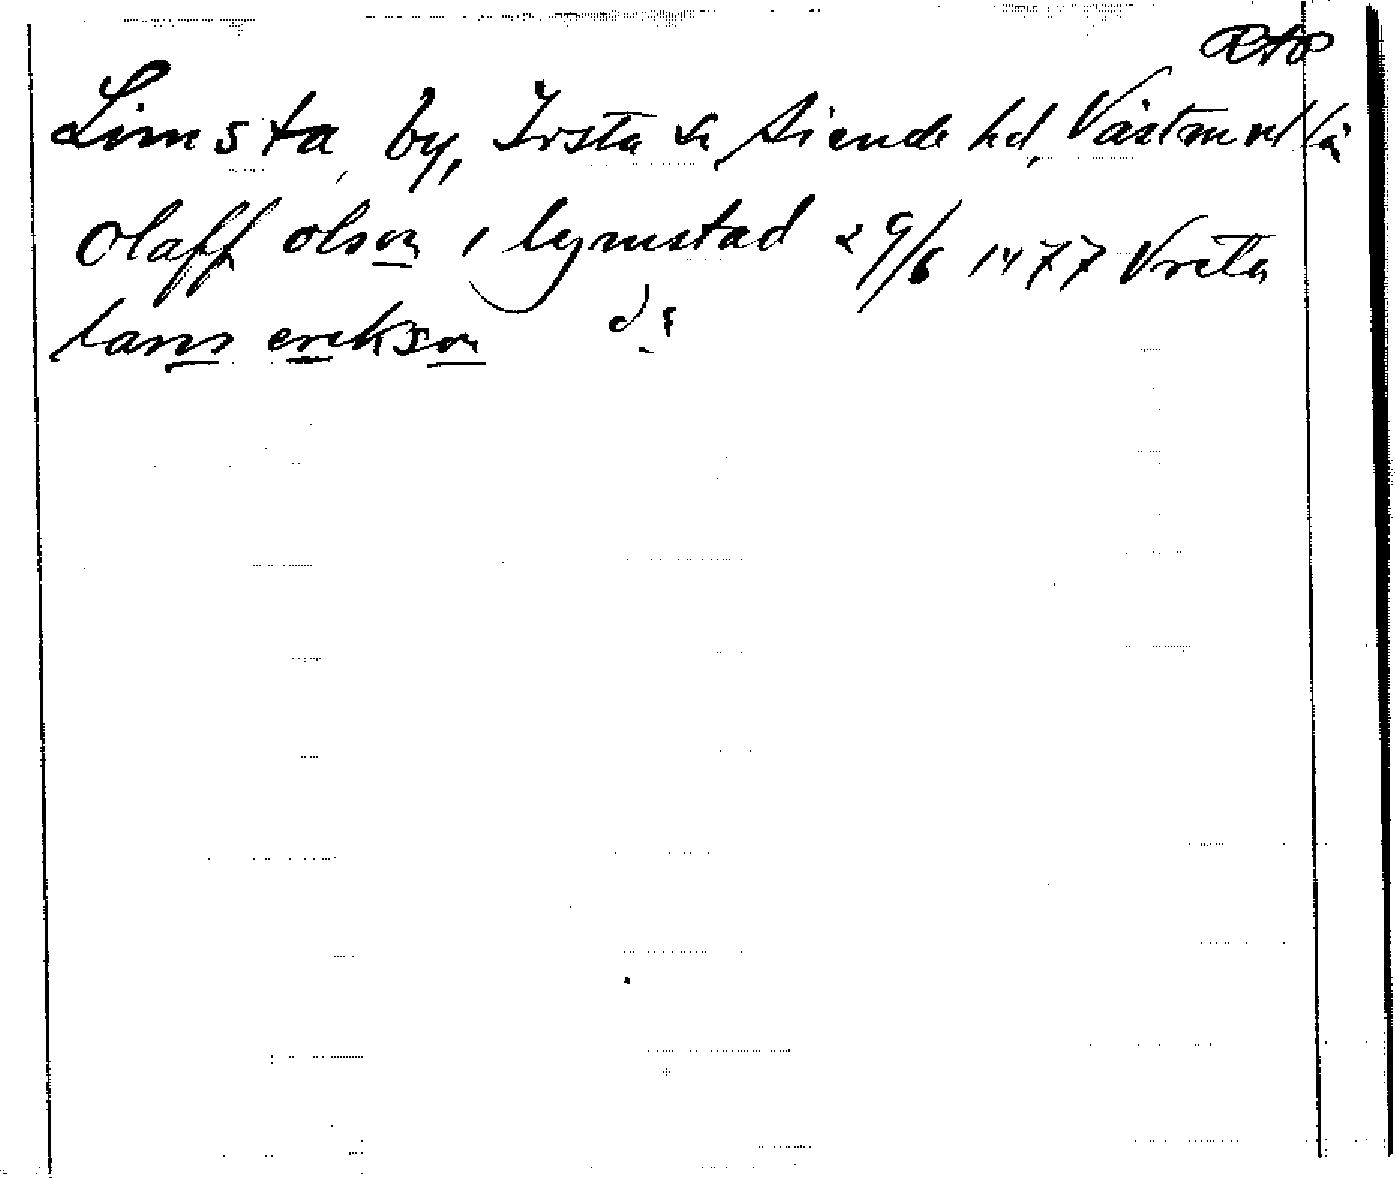 Limsta by, Irsta sn Siende hd, Västml lä
Olaff olson i lymstad 29/6 1477 Vreta
lans erikson ds